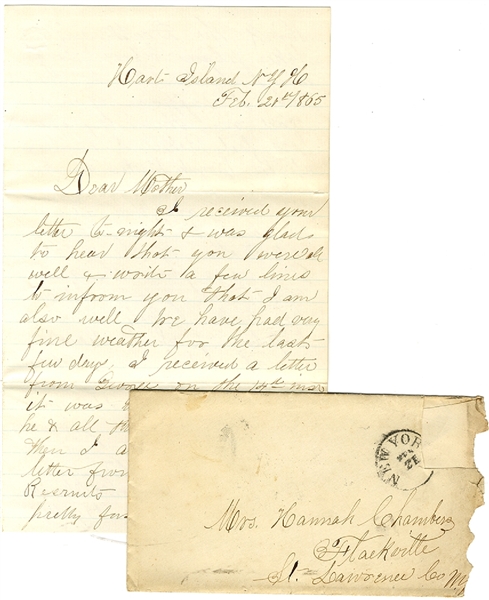 Hart Island N.Y.H
Feb. 21st/1865
Dear Mother
I received your
letter to-night & was glad
to hear that you were all
well & write a few lines
to infrom you that I am
also well. We have had very
fine weather for the last
few days. I received a letter
from George on the 14th
it was
he & all th
then I a
letter from
Recruits
pretty fas
NEW YORK
Mrs. Hannah Chambers
Flackville
St. Lawrence Co N.Y.